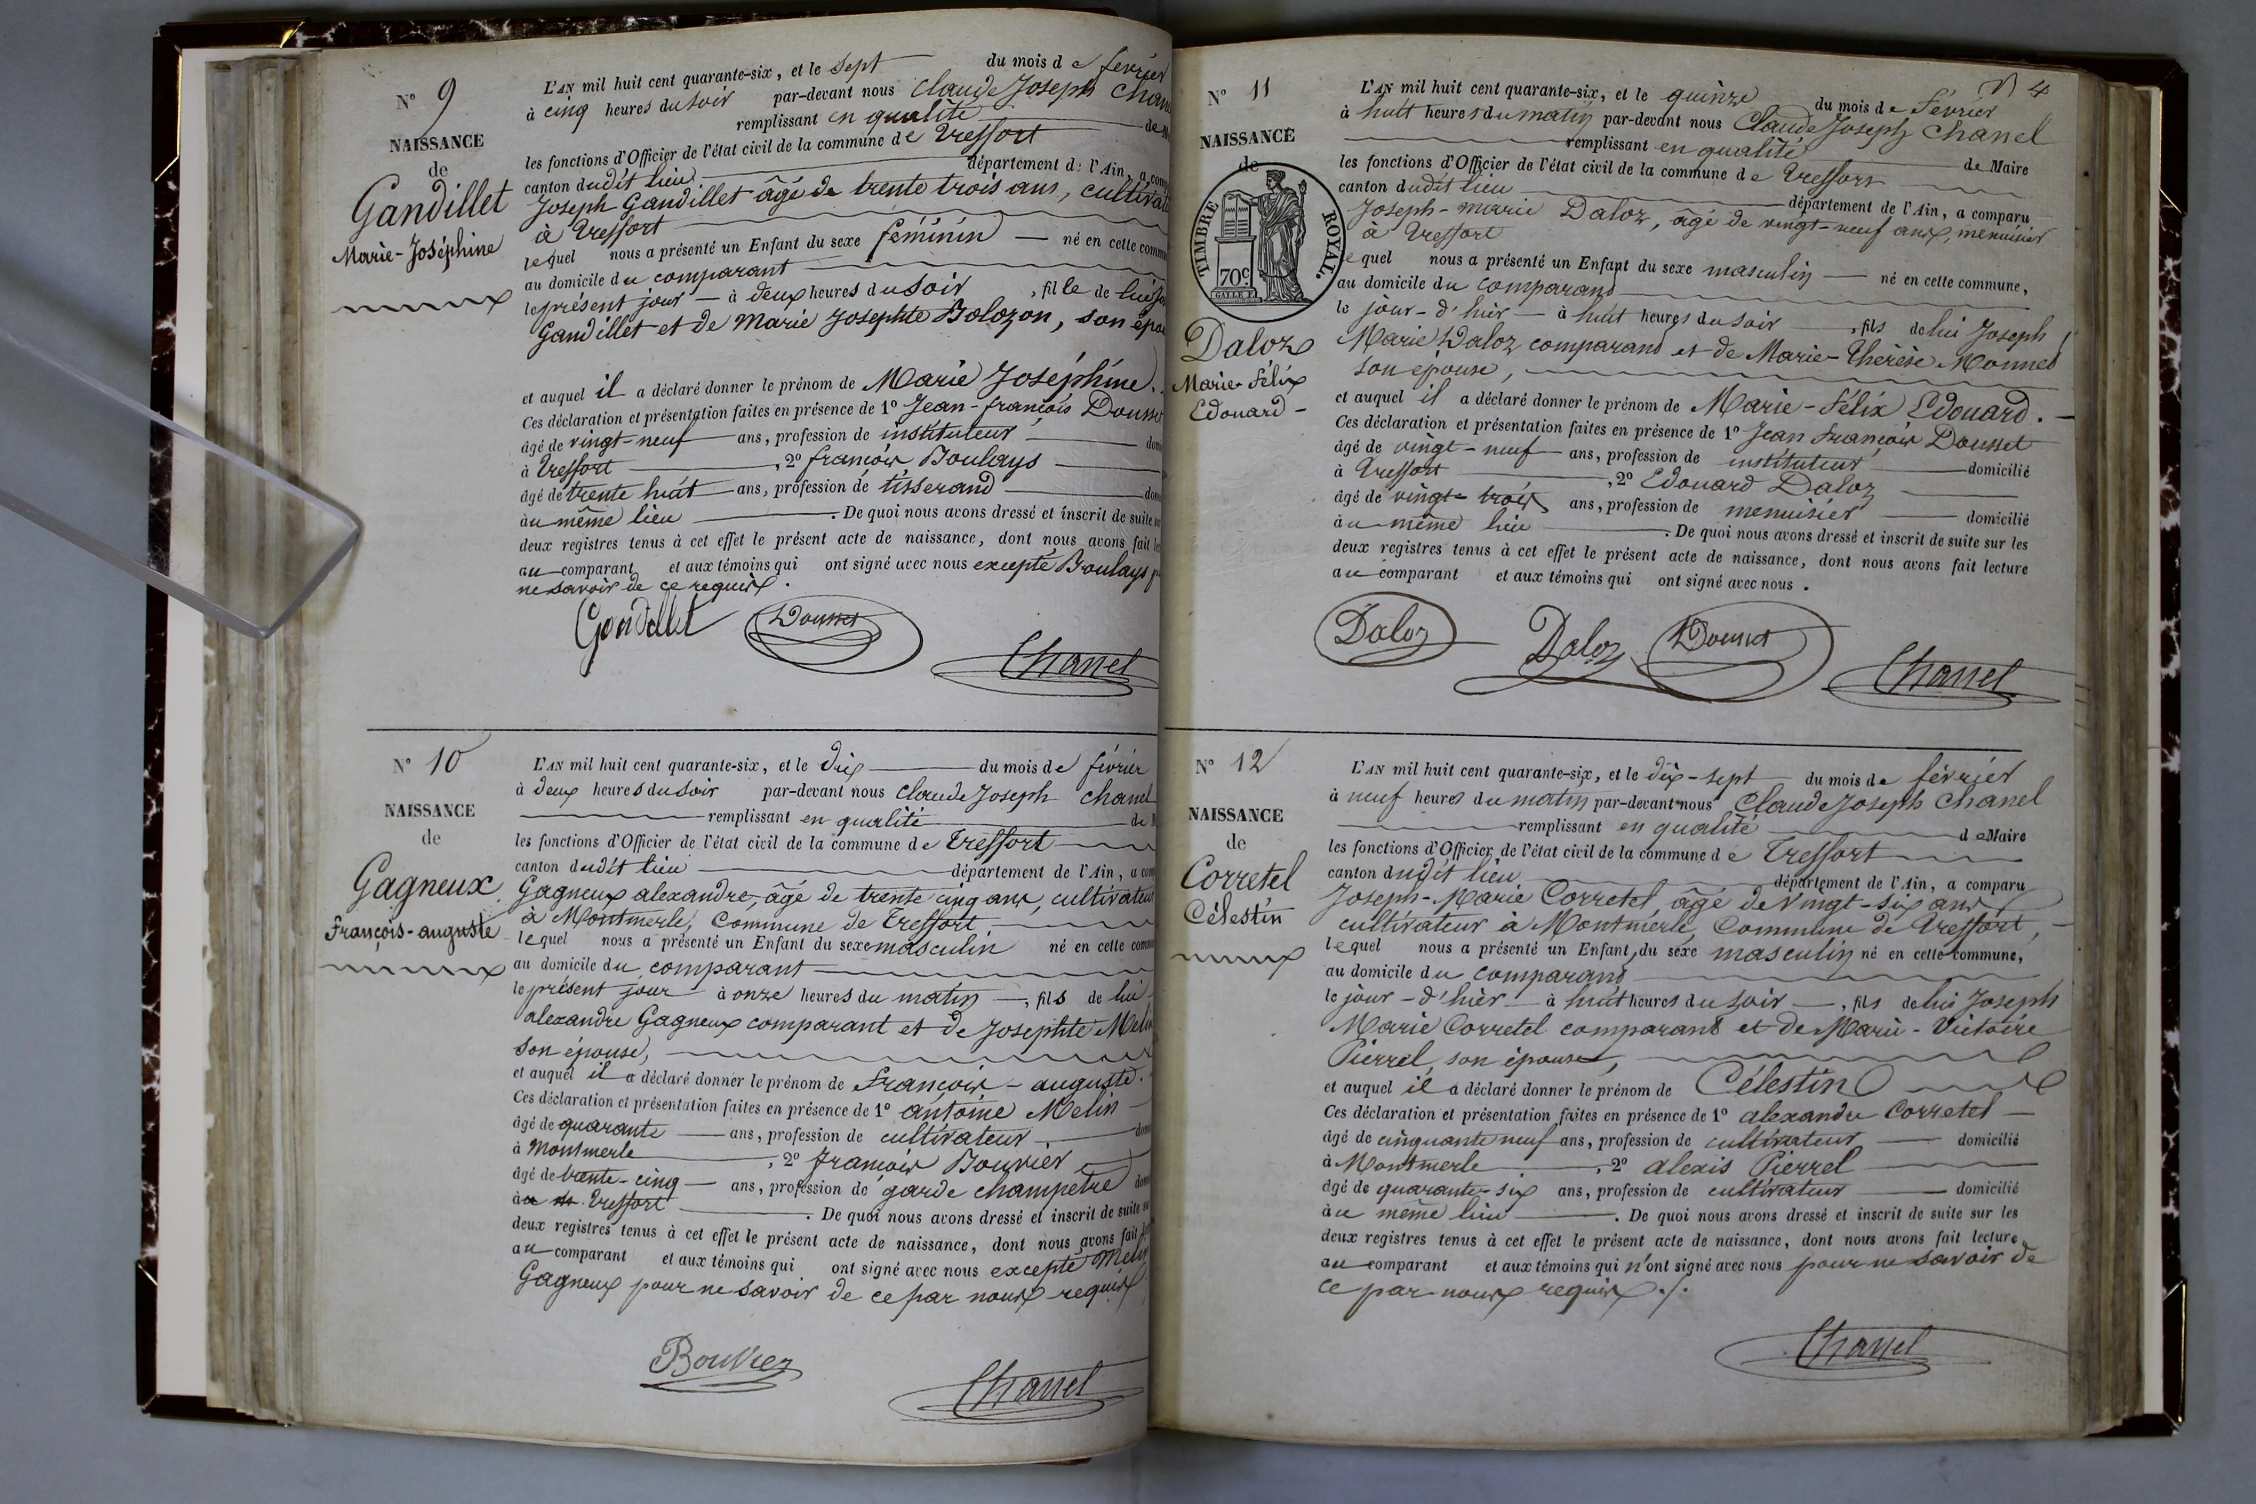 N° 9
NAISSANCE
de
Gandillet
Marie-Joséphine
L'AN mil huit cent quarante-six, et le sept du mois de février
à cinq heures du soir par-devant nous Claude Joseph
remplissant en qualité
les fonctions d'Officier de l'état civil de la commune de Treffort
canton dudit lieu département de l'Ain, a
Joseph Gandillet âgé de trente trois ans,
à Treffort
lequel nous a présenté un Enfant du sexe féminin né en cette
au domicile du comparant
le présent jour à deux heures du soir, fille de lui
Gandillet et de Marie Josephte Bolozon, son
et auquel il a déclaré donner le prénom de Marie Joséphine.
Ces déclaration et présentation faites en présence de 1° Jean-françois
âgé de vingt-neuf ans, profession de instituteur
à Treffort, 2° françois Boulays
âgé de trente huit ans, profession de tisserand
au même lieu. De quoi nous avons dressé et inscrit de suite
deux registres tenus à cet effet le présent acte de naissance, dont nous avons fait
au comparant et aux témoins qui ont signé avec nous excepté Boulays
ne savoir de ce requis.
Gandillet Dousset
Chanel
N° 10
NAISSANCE
de
Gagneux
François-auguste
L'AN mil huit cent quarante-six, et le dix du mois de février
à deux heures du soir par-devant nous Claude Joseph Chanel
remplissant en qualité de
les fonctions d'Officier de l'état civil de la commune de Treffort
canton dudit lieu département de l'Ain, a
Gagneux alexandre, âgé de trente cinq ans, cultivateur
à Montmerle, Commune de Treffort
lequel nous a présenté un Enfant du sexe masculin né en cette
au domicile du comparant
le présent jour à onze heures du matin, fils de lui
alexandre Gagneux comparant et de Josephte
son épouse,
et auquel il a déclaré donner le prénom de François-auguste.
Ces déclaration et présentation faites en présence de 1° antoine Melin
âgé de quarante ans, profession de cultivateur
à Montmerle, 2° françois Bouvier
âgé de trente-cinq ans, profession de garde champêtre
à Treffort. De quoi nous avons dressé et inscrit de suite
deux registres tenus à cet effet le présent acte de naissance, dont nous avons fait
au comparant et aux témoins qui ont signé avec nous excepté
Gagneux pour ne savoir de ce par nous requis
Bouvier
Chanel
4
N° 11
NAISSANCE
de
TIMBRE ROYAL.
70c.
Daloz
Marie-Félix
Edouard-
L'AN mil huit cent quarante-six, et le quinze du mois de Février
à huit heures du matin par-devant nous Claude Joseph Chanel
remplissant en qualité de Maire
les fonctions d'Officier de l'état civil de la commune de Treffort
canton dudit lieu département de l'Ain, a comparu
Joseph-marie Daloz, âgé de vingt-neuf ans, menuisier
à Treffort
lequel nous a présenté un Enfant du sexe masculin né en cette commune,
au domicile du comparant
le jour-d'hier à huit heures du soir, fils de lui Joseph
Marie Daloz comparant et de Marie-Thérèse Monnet
son épouse,
et auquel il a déclaré donner le prénom de Marie-Félix Edouard.
Ces déclaration et présentation faites en présence de 1° Jean François Dousset
âgé de vingt-neuf ans, profession de instituteur domicilié
à Treffort, 2° Edouard Daloz
âgé de vingt-trois ans, profession de menuisier domicilié
au même lieu. De quoi nous avons dressé et inscrit de suite sur les
deux registres tenus à cet effet le présent acte de naissance, dont nous avons fait lecture
au comparant et aux témoins qui ont signé avec nous.
Daloz Daloz Dousset
Chanel
N° 12
NAISSANCE
de
Corretel
Célestin
L'AN mil huit cent quarante-six, et le dix-sept du mois de février
à neuf heures du matin par-devant nous Claude Joseph Chanel
remplissant en qualité de Maire
les fonctions d'Officier de l'état civil de la commune de Treffort
canton dudit lieu département de l'Ain, a comparu
Joseph-Marie Corretel âgé de Vingt-six ans
cultivateur à Montmerle, Commune de Treffort,
lequel nous a présenté un Enfant du sexe masculin né en cette commune,
au domicile du comparant
le jour-d'hier à huit heures du soir, fils de lui Joseph
Marie Corretel comparant et de Marie-Victoire
Pierrel, son épouse,
et auquel il a déclaré donner le prénom de Célestin
Ces déclaration et présentation faites en présence de 1° alexandre Corretel
âgé de cinquante neuf ans, profession de cultivateur domicilié
à Montmerle, 2° alexis Pierrel
âgé de quarante-six ans, profession de cultivateur domicilié
au même lieu. De quoi nous avons dressé et inscrit de suite sur les
deux registres tenus à cet effet le présent acte de naissance, dont nous avons fait lecture
au comparant et aux témoins qui n'ont signé avec nous pour ne savoir de
ce par nous requis./.
Chanel